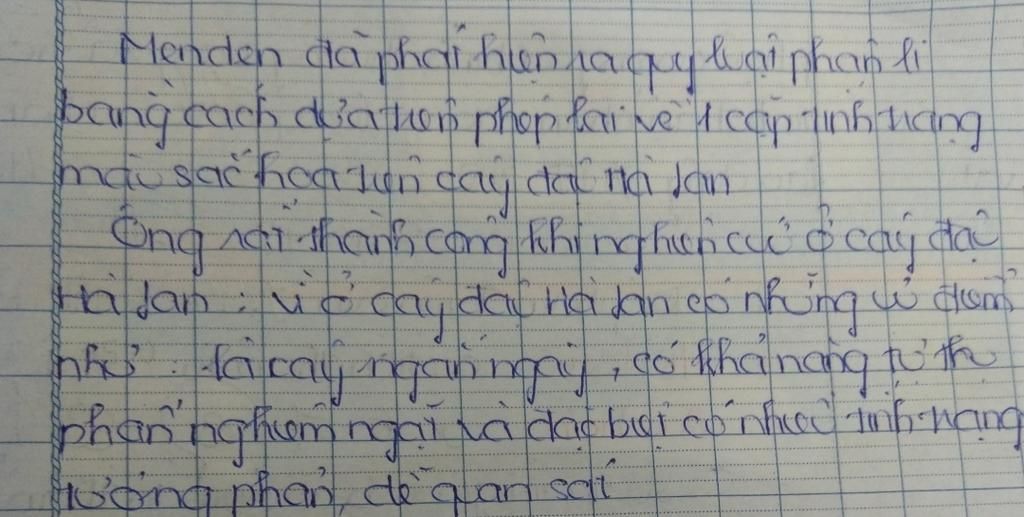 Menđen đã phát hiện ra quy luật phân li
bằng cách dựa trên phép lai về 1 cặp tính trạng
màu sắc hoa trên cây đậu Hà Lan
Ông rất thành công khi nghiên cứu ở cây đậu
Hà Lan : vì ở cây đậu Hà Lan có những ưu điểm
như : là cây ngắn ngày, có khả năng tự thụ
phấn nghiêm ngặt và đặc biệt có nhiều tính trạng
tương phản, dễ quan sát